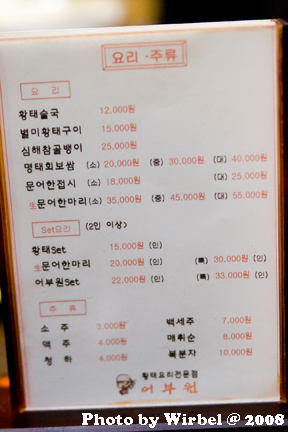 요리·주류
요 리
황태술국 12,000원
별미황태구이 15,000원
심해참골뱅이 25,000원
명태회보쌈 (소) 20,000원 (중) 30,000원 (대) 40,000원
문어한접시 (소) 18,000원 (대) 25,000원
生문어한마리 (소) 35,000원 (중) 45,000원 (대) 55,000원
Set요리 (2인 이상)
황태Set 15,000원 (인)
生문어한마리 20,000원 (인) (특) 30,000원 (인)
어부원Set 22,000원 (인) (특) 33,000원 (인)
주 류
소 주 3,000원 백세주 7,000원
맥 주 4,000원 매취순 8,000원
청 하 4,000원 복분자 10,000원
황태요리전문점
어부원
Photo by Wirbel @ 2008